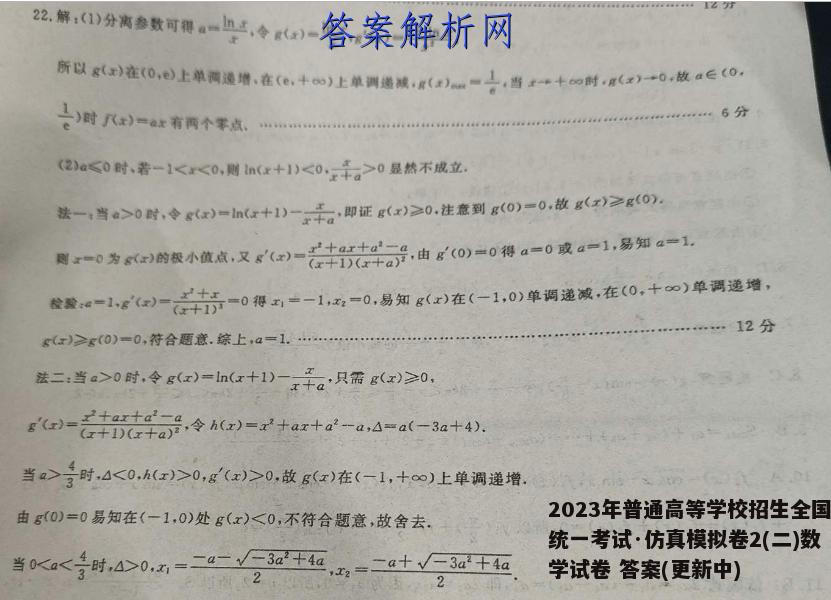 12 分
22.解:(1)分离参数可得 a=ln x/x,令 g(x)=
答案解析网
所以 g(x)在(0,e)上单调递增,在(e,+∞)上单调递减,g(x)max=1/e,当 x→+∞时,g(x)→0,故 a∈(0,
1/e)时 f(x)=ax 有两个零点. …… 6 分
(2)a≤0 时,若-1<x<0,则 ln(x+1)<0,x/(x+a)>0 显然不成立.
法一:当 a>0 时,令 g(x)=ln(x+1)-x/(x+a),即证 g(x)≥0,注意到 g(0)=0,故 g(x)≥g(0).
则 x=0 为 g(x)的极小值点,又 g′(x)=(x²+ax+a²-a)/((x+1)(x+a)²),由 g′(0)=0 得 a=0 或 a=1,易知 a=1.
检验:a=1,g′(x)=(x²+x)/(x+1)³=0 得 x₁=-1,x₂=0,易知 g(x)在(-1,0)单调递减,在(0,+∞)单调递增,
g(x)≥g(0)=0,符合题意.综上,a=1. …… 12 分
法二:当 a>0 时,令 g(x)=ln(x+1)-x/(x+a),只需 g(x)≥0,
g′(x)=(x²+ax+a²-a)/((x+1)(x+a)²),令 h(x)=x²+ax+a²-a,Δ=a(-3a+4).
当 a>4/3时,Δ<0,h(x)>0,g′(x)>0,故 g(x)在(-1,+∞)上单调递增.
由 g(0)=0 易知在(-1,0)处 g(x)<0,不符合题意,故舍去.
当 0<a<4/3时,Δ>0,x₁=(-a-√(-3a²+4a))/2,x₂=(-a+√(-3a²+4a))/2.
2023年普通高等学校招生全国
统一考试·仿真模拟卷2(二)数
学试卷 答案(更新中)